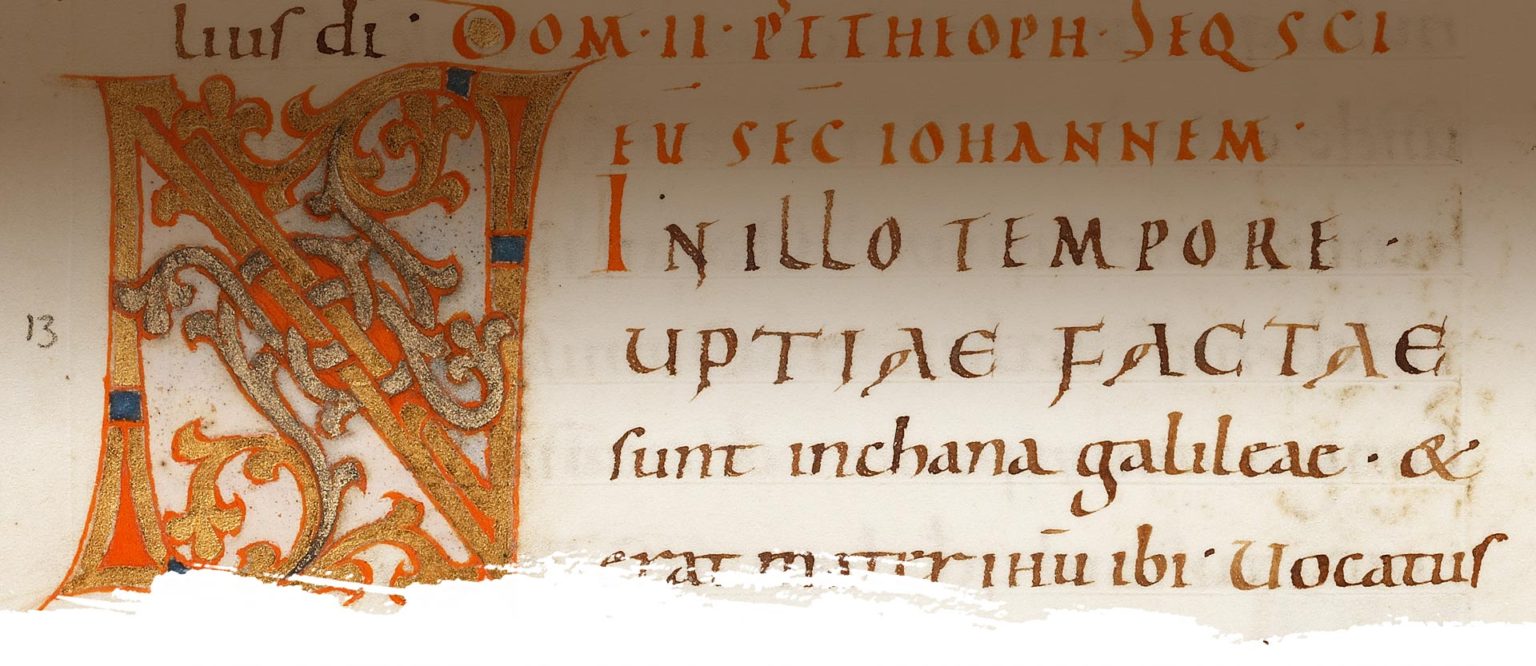 lius di · DOM · II · P̅ THEOPH · SEQ SCI
EU SEC IOHANNEM ·
IN ILLO TEMPORE ·
13
NUPTIAE FACTAE
sunt inchana galileae · &
erat mater ihu ibi · Uocatus